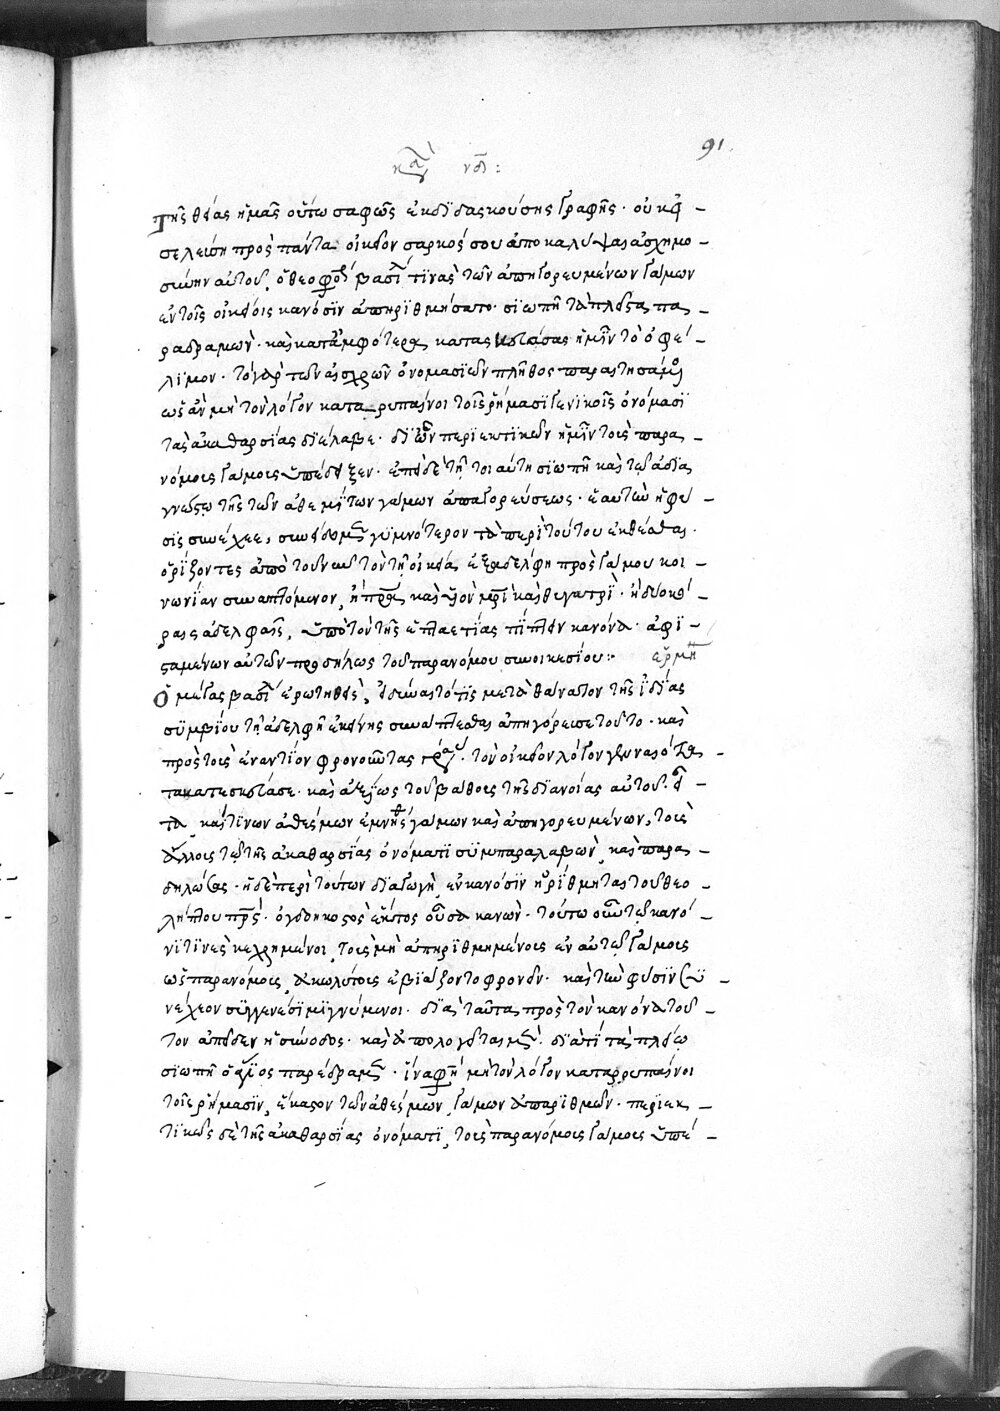 91
κανὼν νδ:
Τῆς θείας ἡμᾶς οὕτω σαφῶς ἐκδιδασκούσης γραφῆς· οὐκ εἰ
σελεύση πρὸς πάντα οἰκεῖον σαρκός σου ἀποκαλύψαι ἀσχημο
σύνην αὐτοῦ, ὁ θεοφόρος βασίλειος τινὰς τῶν ἀπηγορευμένων γάμων
ἐν τοῖς οἰκείοις κανόσιν ἀπηριθμήσατο· σιωπῇ τὰ πλεῖστα πα
ραδραμών· καὶ κατ' ἀμφότερα κατασκευάσας ἡμῖν τὸ ὀφέ
λιμον· τὸ γὰρ τῶν αἰσχρῶν ὀνομασιῶν πλῆθος παραιτησάμενος
ὡς ἂν μὴ τὸν λόγον καταρρυπαίνοι τοῖς ῥήμασι γενικοῖς ὀνόμασι
τὰς ἀκαθαρσίας διέλαβε· δι' ὧν περιεκτικῶν ἡμῖν τοὺς παρα
νόμους γάμους ὑπέδειξεν· ἐπεὶ δὲ τῇ τοιαύτη σιωπῇ καὶ τῷ ἀδια
γνώστω τῆς τῶν ἀθεμίτων γάμων ἀπαγορεύσεως· ἑαυτὴν ἡ φύ
σις συνέχεε, συνείδομεν γυμνότερον τὰ περὶ τούτου ἐκθέσθαι·
ὁρίζοντες ἀπὸ τοῦ νῦν τὸν τῇ οἰκεία ἐξαδέλφη πρὸς γάμου κοι
νωνίαν συναπτόμενον, ἢ πατέρα καὶ υἱὸν μητρὶ καὶ θυγατρί· ἢ δύο κό
ραις ἀδελφαῖς, ὑπὸ τὸν τῆς ἑπταετίας πίπτειν κανόνα· ἀφι
σταμένων αὐτῶν προδήλως τοῦ παρανόμου συνοικεσίου: ἑρμη
Ὁ μέγας βασίλειος ἐρωτηθεὶς, εἰ δύναταί τις μετὰ θάνατον τῆς ἰδίας
συμβίου τῇ ἀδελφῇ ἐκείνης συνάπτεσθαι ἀπηγόρευσε τοῦτο· καὶ
πρὸς τοὺς ἐναντίον φρονοῦντας γράψας· τὸν οἰκεῖον λόγον γενναιότα
τα κατεσκεύασε· καὶ ἀξίως τοῦ βάθους τῆς διανοίας αὐτοῦ· εἶ
τα καί τινων ἀθέσμων ἐμνήσθη γάμων καὶ ἀπηγορευμένων, τοὺς
ἄλλους τῷ τῆς ἀκαθαρσίας ὀνόματι συμπαραλαβὼν, καὶ παρα
δηλώσας· ἡ δὲ περὶ τούτων διαγωγὴ ἐν κανόσιν ἠρίθμηται τοῦ θεο
λήπτου πατρὸς· ὀγδοηκοστὸς ἕκτος οὖσα κανών· τούτω οὖν τῷ κανό
νι τινὲς κεχρημένοι, τοὺς μὴ ἀπηριθμημένους ἐν αὐτῷ γάμους
ὡς παρανόμους, ἀκωλύτους ἐβιάζοντο φρονεῖν· καὶ τὴν φύσιν συ
νέχεον συγγενέσι μιγνύμενοι· διὰ ταῦτα πρὸς τὸν κανόνα τοῦ
τον ἀπεῖδεν ἡ σύνοδος· καὶ ἀπολογεῖται μὲν· διατί τὰ πλείω
σιωπῇ ὁ ἅγιος παρέδραμεν· ἵνα φησὶ μὴ τὸν λόγον καταρρυπαίνοι
τοῖς ῥήμασιν, ἕκαστον τῶν ἀθέσμων γάμων ἀπαριθμῶν· περιεκ
τικῶς δὲ τῆς ἀκαθαρσίας ὀνόματι, τοὺς παρανόμους γάμους ὑπέ